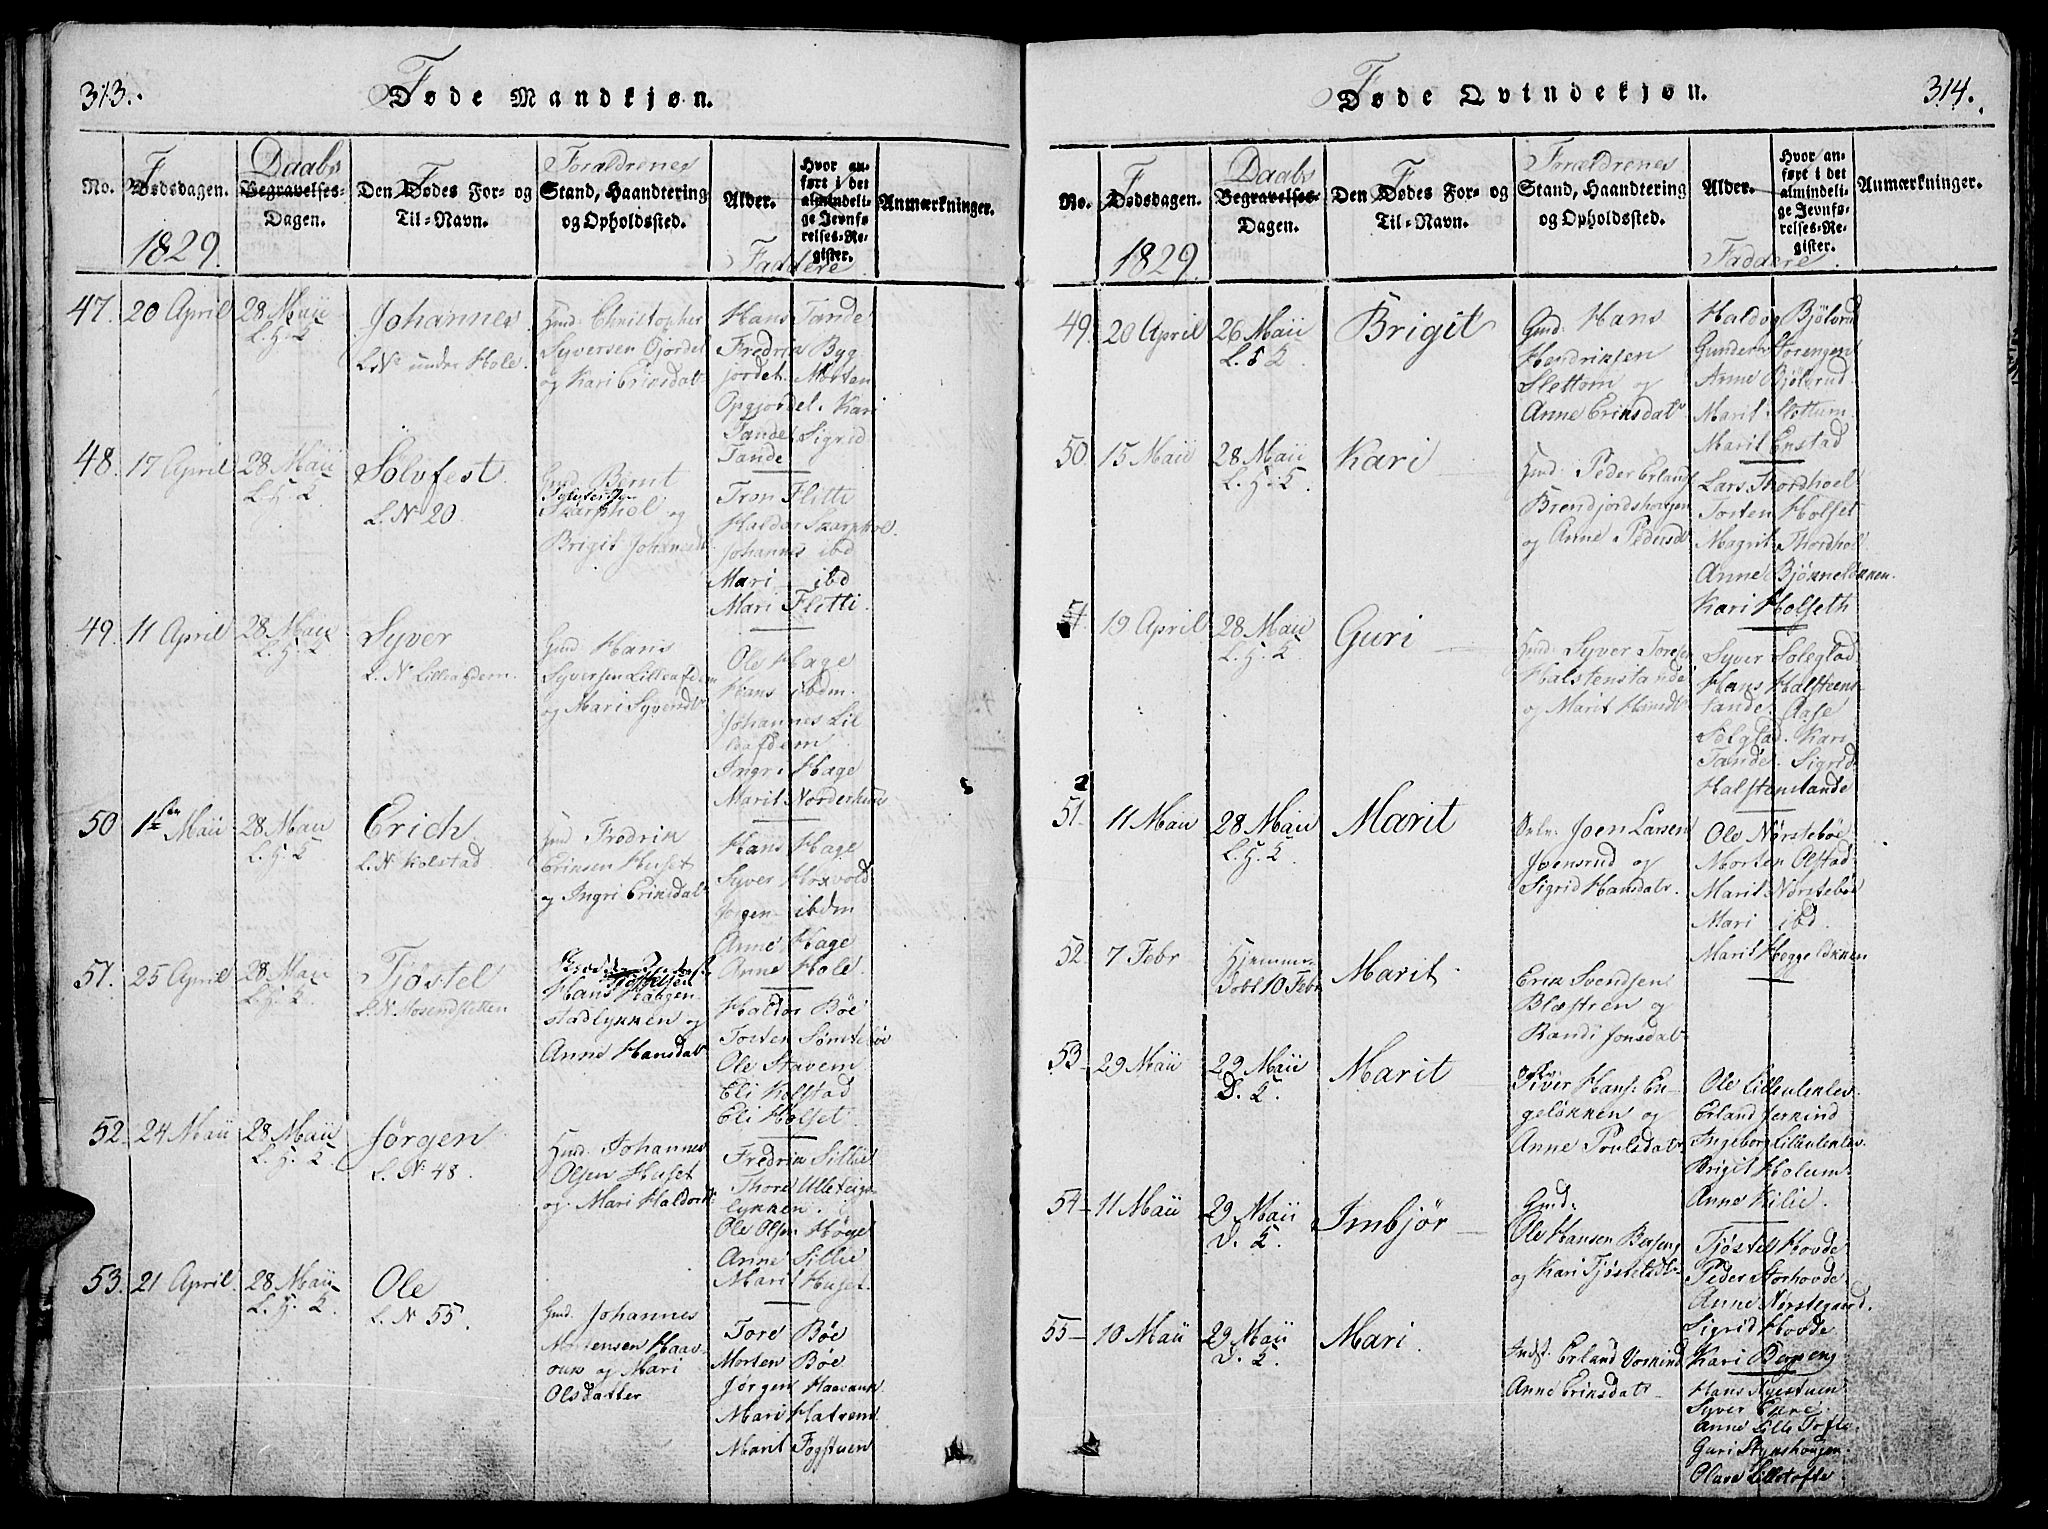 313.
Føde Mandkjøn.
No.
Fødsdagen.
1829.
Daabs
Begravelses-
Dagen.
Den Fødes For- og
Til-Navn.
Forældrenes
Stand, Haandtering
og Opholdssted.
Alder.
Faddere
Hvor an-
ført i det
almindeli-
ge Jevnfø-
relses-Re-
gister.
Anmærkninger.
47.
20 April
28 Maii
L. H. K
Johannes
LN under Hole.
Gmd. Christopher
Syversen Gjordet
og Kari Eriksdatr
Hans Tande
Fredrik Byg
jordet. Morten
Opgjordet. Kari
Tande Sigrid
Tande
48.
17 April
28 Maii
L. H. K
Sölvfest
L. N 20
Gmd Bernt
Skarphol og
Brigit Johannesdr
Tron Flitti
Haldor Skarphol
Johannes ibd
Mari ibd
Mari Flitti.
49.
11 April
28 Maii
L. H. K
Syver
L. N Lilleafdem.
Gmd Hans
Syversen Lilleafdem
og Mari Syversdr
Ole Hage
Hans ibdm.
Johannes Lil
leafdem
Ingri Hage
Marit Norderhuus
50
1ste Maii
28 Maii
L. H. K
Erich
L. N Kolstad
Gmd Fredrik
Eriksen Huset
og Ingri Eriksdatr
Hans Hage
Syver Hoxvold
Jørgen ibdm
Anne Hage
Anne Hole
51.
25 April
28 Maii
L. H. K
Tjøstel
L. N Aosendstekken
Hans Haagen
stadlykken og
Anne Hansdatr
Haldor Bøe
Tosten Sønstebøe
Ole Stavem
Eli Kolstad
Eli Holset
52.
24 Maii
28 Maii
L. H. K
Jørgen
L. N 48.
Gmd. Johannes
Olsen Huset
og Mari Haldorsdr
Fredrik Sillie
Thore Ulleteigs-
lykken.
Ole Olsen Høge
Anne Sillie
Marit Huset.
53.
21 April.
28 Maii
L. H. K
Ole
L. N 55.
Gmd. Johannes
Mortensen Haav-
ouk og Mari
Olsdatter
Tore Bøe
Morten Bøe
Jørgen Haavouk
Mari Hatrem
Marit Fogstuen
314.
Føde Qvindekjøn.
No.
Fødsdagen.
1829
Daabs
Begravelses-
Dagen.
Den Fødes For- og
Til-Navn.
Forældrenes
Stand, Haandtering
og Opholdssted.
Alder.
Faddere.
Hvor an-
ført i det
almindeli-
ge Jevnfø-
relses-Re-
gister.
Anmærkninger.
49.
20 April
26 Maii
L. S K.
Brigit
Gmd. Hans
Hendriksen
Slettom og
Anne Eriksdatr
Haldog Bjölvrud
Gunder Storengen
Anne Bjölvrud.
Marit Slettum.
Marit Enstad
50.
15 Maii
28 Maii
L. H. K.
Kari
Gmd. Peder Erland
Brendjordshougen
og Anne Pedersdr
Lars Thordhoel
Tosten Holset
Magrit Thordhol
Anne Bjøkneløkken.
Kari Holseth
51.
19 April
28 Maii
L. H. K.
Guri
Gmd: Syver Tores
Halstenstande
og Marit Hansdr
Syver Soleglad
Hans Halsteens-
tande. Aase
Solglad. Kari
Tande. Sigrid
Halstenstande
51.
11 Maii
28 Maii
L. H. K.
Marit
Joen Larsen
Joensrud og
Sigrid Hansdatr.
Ole Nørstebøe
Morten Olstad
Marit Nørstebøe
Mari ibd.
Marit Heggeløkken
52.
7 Febr
Hjemme-
Døbt 10 Febr
Marit.
Erik Svendsen
Blæstren og
Randi Jonsdatr
53
29 Maii
29 Maii
D. K.
Marit
Siver Hans: En-
geløkken og
Anne Poulsdatr
Ole Lilleulenlev.
Erland Jerkind
Ingeborg Lilleulenlev
Brigit Holum
Anne Kilie.
54
11 Maii
29 Maii
D. K.
Imbjør
Gmd.
Ole Hansen Berseng
og Kari Tjøstelsdr
Tjøstel Hovde
Peder Storhovde
Anne Nørstegaard.
Sigrid Hovde
Kari Berseng
55
10 Maii
29 Maii
D. K.
Mari.
Indst. Erland Vorkind
Anne Eriksdatr
Hans Nyestuen
Syver Enre.
Anne Lille Tofte
Guri Stynshougen.
Olave Lilletofte